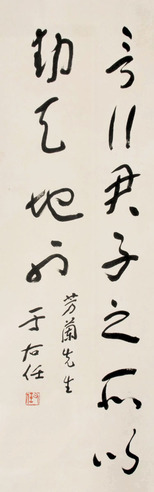 言行君子之所以
動天地而
芳蘭先生
于右任